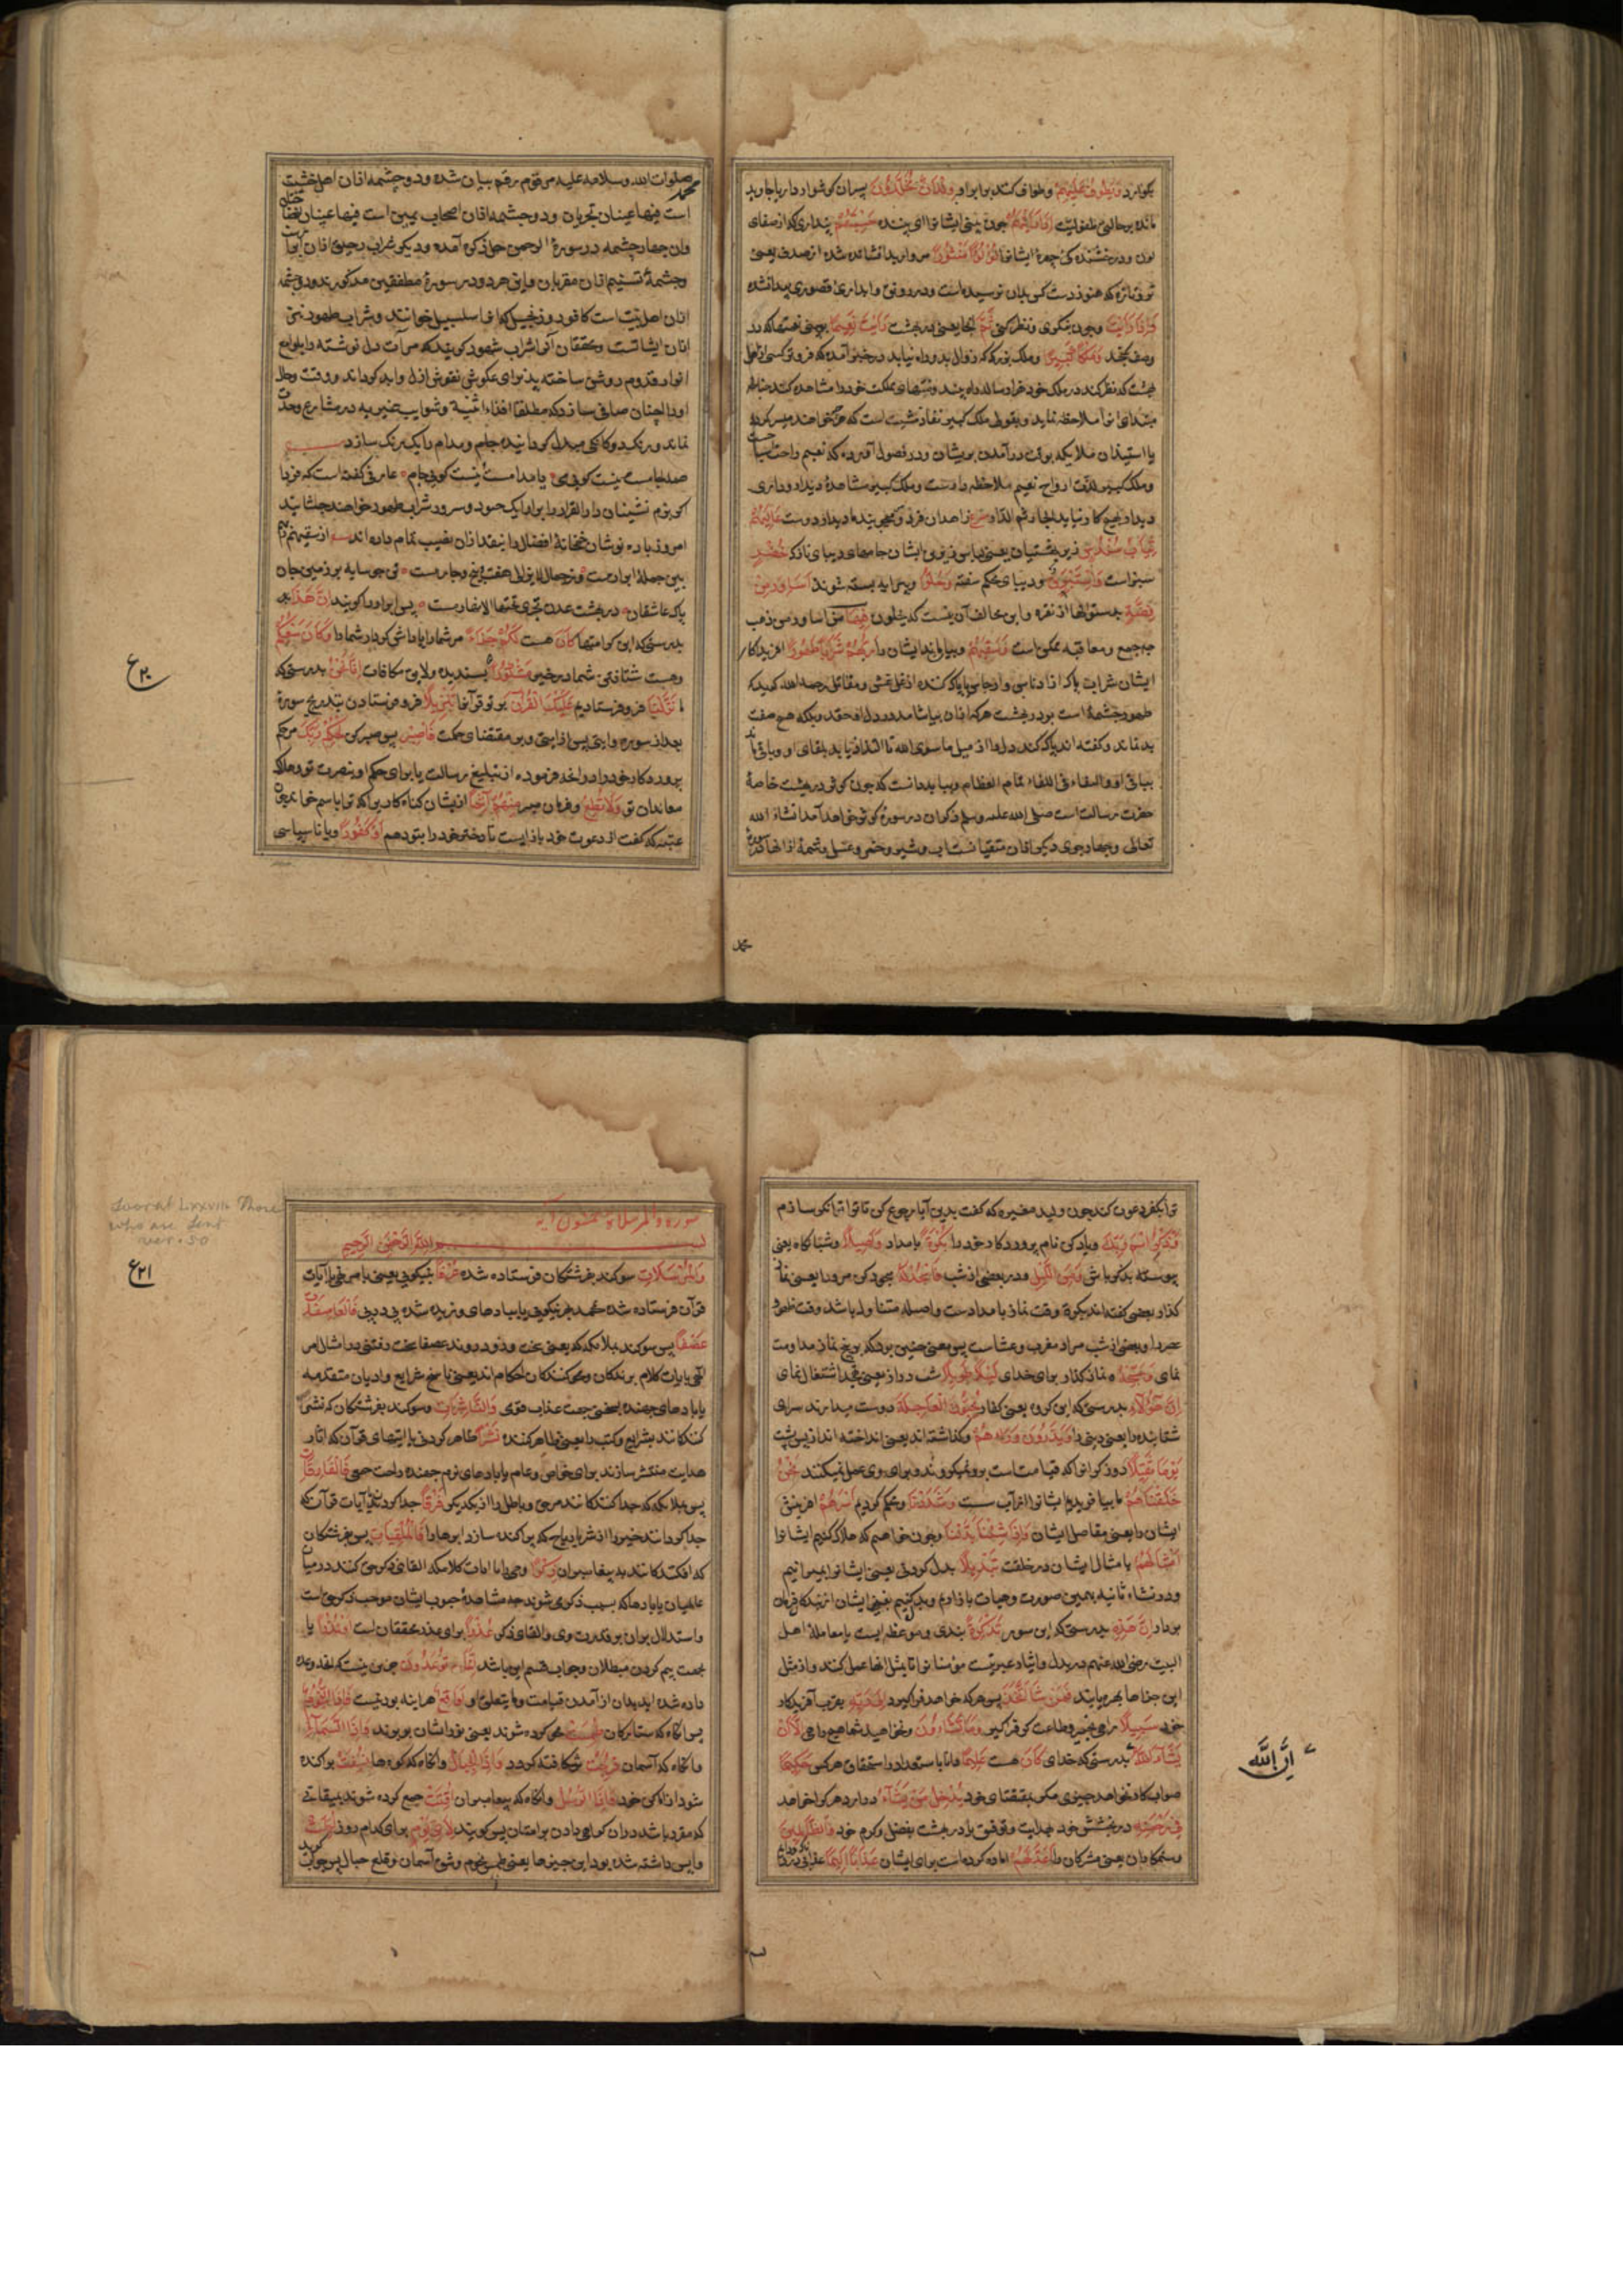 وَيَطُوفُ عَلَيْهِمْ وطواف کنند برایرار وِلْدَانٌ مُخَلَّدُونَ پسران کوشواردار یا جاوید
مانده بر حالت طفولیت إِذَا رَأَيْتَهُمْ چون بینی ایشانرا ای بیننده حَسِبْتَهُمْ پنداری که از صفای
لون ودرخشنده کی چهرهٔ ایشانرا لُؤْلُؤًا مَنْثُورًا مروارید افشانده شده از صدف یعنی
تر وتازه که هنوز دست کس بدان نرسیده است ودر رونق وابداری قصوری پیدا نشده
وَإِذَا رَأَيْتَ وچون بنکری ونظر کنی ثَمَّ انجا یعنی در بهشت رَأَيْتَ نَعِيمًا به بینی نعمتها که در
وصف نکنجد وَمُلْكًا كَبِيرًا وملک بزرک که زوال بدو راه نیابد در خبر آمده که فروتر کسی از اهل
بهشت که نظر کند در ملک خود هزار ساله راه بیند ومنتهای مملکت خود را مشاهده کند چنانکه
مبتدای انرا ملاحظه نماید وبقولی ملک کبیر نفاذ مشیت است که هرچه خواهند میسر کردد
یا استیذان ملایکه بوقت درآمدن بریشان ودر فصول آورده که نعیم راحت
وملک کبیر لذت ارواح نعیم ملاحظه دارست وملک کبیر مشاهدهٔ دیدار وداری
دیدار هیچ کار نیاید انجا زاهدان فردوس میجویند ما دیدار دوست عَالِيَهُمْ
ثِيَابُ سُنْدُسٍ زبر بهشتیان یعنی لباس زبرین ایشان جامهای دیبای نازک خُضْرٌ
سبز است وَإِسْتَبْرَقٌ ودیبای محکم سفته وَحُلُّوا وپیرایه بسته شوند أَسَاوِرَ مِنْ
فِضَّةٍ بدستوانها از نقره واین مخالف آن نیست که یحلون فیها من اساور من ذهب
چه جمع ومعاقبه ممکن است وَسَقَاهُمْ وبیاشاماند ایشان را رَبُّهُمْ شَرَابًا طَهُورًا افریدکار
ایشان شرابی پاک از ادناس وارجاس یا پاک کننده از غل وغش ومقاتل رحمه الله کوید که
طهور چشمهٔ است بر در بهشت هر که از ان بیاشامد در دل او حقد وکینه وهیچ صفت
بد نماند وکفته اند پاک کند دل را از میل ما سوی الله تا التذاذ یابد بلقای او وباقی ماند
ببقای او والبقاء فی اللقاء تمام العظام وبباید دانست که چون کوثر در بهشت خاصهٔ
حضرت رسالت است صلی الله علیه وسلم وذکر ان در سورهٔ کوثر خواهد آمد انشاء الله
تعالی وچهار جوی دیکر از ان متقیانست آب وشیر وخمر وعسل وتتمهٔ از انها در سوره
محمد
محمد صلوات الله وسلامه علیه مرقوم رقم بیان شده ودو چشمه از ان اهل خشیت
است فیهما عینان تجریان ودو چشمه از ان اصحاب یمین است فیهما عینان نضاختان
وان چهار چشمه در سورهٔ الرحمن ذکر آمده ودیکر شراب رحیق از ان ابرار است
وچشمهٔ تسنیم از ان مقربان واین هر دو در سورهٔ مطففین مذکورند ودو چشمه
از ان اهل بیت است کافور وزنجبیل که انرا سلسبیل خوانند وشراب طهور نیز
از ان ایشانست ومحققان آنرا شراب شهود کویند که مرآت دل نوشنده را بلوامع
انوار قدوم روشن ساخته پذیرای عکوس نقوش ازل وابد کرداند ووقت وحال
او را چنان صافی سازد که مطلقا اقذاء اثنیة وشوایب غیریه در مشارع وحدت
نماند ورنک دوکانکی مبدل کردانیده جام ومدام را یک رنک سازد
همه جامست نیست کویی می یا مدامست نیست کویی جام عارفی کفته است که فردا
اکر بزم نشینان دار القرار را برارایک حسود وسرور شراب طهور خواهند چشانید
امروز باده نوشان خمخانهٔ افضال را بنقد از ان نصیب تمام داده اند از سقیهم ربهم
ببین جملهٔ ابرار مست وز جمال لایزالی هفت وپنج وچار مست نی چی سایه بر زمین جان
پاک عاشقان در بهشت عدن تجری تحتها الانهار مست پس ابرار را کویند إِنَّ هَذَا
بدرستی که این کرامتها كَانَ هست لَكُمْ جَزَاءً مر شما را پاداش کردار شما را وَكَانَ سَعْيُكُمْ
وهست شتافتن شما در خیر مَشْكُورًا پسندیده ولایق مکافات إِنَّا نَحْنُ بدرستی که
ما نَزَّلْنَا فرو فرستادیم عَلَيْكَ الْقُرْآنَ بر تو قرآن را تَنْزِيلًا فرو فرستادن بتدریج سورهٔ
بعد از سوره وایتی پس از ایتی وبر مقتضای حکمت فَاصْبِرْ پس صبر کن لِحُكْمِ رَبِّكَ مر حکم
پروردکار خود را در آنچه فرموده از تبلیغ رسالت یا برای حکم او بنصرت تو وهلاک
معاندان تو وَلَا تُطِعْ وفرمان مبر مِنْهُمْ آثِمًا از یشان کناه کار را که ترا باثم خواند یعنی
عتبه که کفت از دعوت خود باز ایست تا دختر خود را بتو دهم أَوْ كَفُورًا ویا ناسپاسی
ع۲۰
ترا بکفر دعوت کند چون ولید مغیره که کفت بدین آبا رجوع کن تا ترا توانکر سازم
وَاذْكُرِ اسْمَ رَبِّكَ ویاد کن نام پروردکار خود را بُكْرَةً بامداد وَأَصِيلًا وشبانکاه یعنی
پیوسته بذکر باش وَمِنَ اللَّيْلِ ودر بعضی از شب فَاسْجُدْ لَهُ سجود کن مر ورا یعنی نماز
کذار بعضی کفته اند بکرة وقت نماز بامدادست واصیل متناول باشد وقت ظهر و
عصر را وبعضی از شب مراد مغرب وعشاست پس معنی چنین بود که بر پنج نماز مداومت
نمای وَسَبِّحْهُ ونماز کذار برای خدای لَيْلًا طَوِيلًا شب دراز یعنی بتهجد اشتغال نمای
إِنَّ هَؤُلَاءِ بدرستی که این کروه یعنی کفار يُحِبُّونَ الْعَاجِلَةَ دوست میدارند سرای
شتابنده را یعنی دنیا وَيَذَرُونَ وَرَاءَهُمْ وکذاشته اند یعنی انداخته اند از پس پشت
يَوْمًا ثَقِيلًا روز کران را که قیامت است برو نمیکروند وبرای وی عمل نمیکنند نَحْنُ
خَلَقْنَاهُمْ ما بیافریدیم ایشانرا از آب سست وَشَدَدْنَا ومحکم کردیم أَسْرَهُمْ افرینش
ایشان را یعنی مفاصل ایشان وَإِذَا شِئْنَا بَدَّلْنَا وچون خواهیم که هلاک کنیم ایشانرا
أَمْثَالَهُمْ بامثال ایشان در خلقت تَبْدِيلًا بدل کردنی یعنی ایشانرا بمیرانیم
ودر نشاء ثانیه بهمین صورت وحیات باز اریم وبدل کنیم بغیر ایشان
إِنَّ هَذِهِ بدرستی که این سوره تَذْكِرَةٌ پندی وموعظه ایست یا معاملهٔ اهل
البیت رضی الله عنهم در بذل وایثار عبرتیست مؤمنانرا تا بمثل انها عمل کنند واز مثل
این جزاها بهره یابند فَمَنْ شَاءَ اتَّخَذَ پس هر که خواهد فراکیرد إِلَى رَبِّهِ بقرب آفریدکار
خود سَبِيلًا راهی بخیر وطاعت کو فراکیر وَمَا تَشَاءُونَ ونخواهید شما هیچ راهی إِلَّا أَنْ
يَشَاءَ اللَّهُ بدرستی که خدای كَانَ هست عَلِيمًا دانا باستعداد واستحقاق هر کس حَكِيمًا
صواب کار ونخواهد چیزی مکر بمقتضای خود يُدْخِلُ مَنْ يَشَاءُ در ارد هر کرا خواهد
فِي رَحْمَتِهِ در بخشش خود بهدایت وتوفیق یا در بهشت بفضل وکرم خود وَالظَّالِمِينَ
وستمکاران یعنی مشرکان را أَعَدَّ لَهُمْ اماده کرده است برای ایشان عَذَابًا أَلِيمًا عذابی دردناک
إِنَّ اللَّه
بسم
سوره والمرسلات خمسون آیه
بسم الله الرحمن الرحیم
وَالْمُرْسَلَاتِ سوکند بفرشتکان فرستاده شده عُرْفًا بنیکویی یعنی بامر ونهی یا بآیات
قرآن فرستاده شده بمحمد بهر نیکویی یا ببادهای وزیده شده پی در پی فَالْعَاصِفَاتِ
عَصْفًا پس سوکند بملایکه که یعنی سخت وزود روند عصفا سخت رفتنی در امتثال امر
الهی یا بآیات کلام برندکان ومحو کنندکان احکام اند یعنی ناسخ شرایع وادیان متقدمه
یا بادهای جهنده بسختی جهت عذاب قومی وَالنَّاشِرَاتِ وسوکند بفرشتکان که نشر
کنندکانند بشرایع وکتب را یعنی ظاهر کننده نَشْرًا ظاهر کردنی یا ایتهای قرآن که اثار
هدایت منتشر سازند برای خاص وعام یا بادهای نرم جهنده راحت فَالْفَارِقَاتِ
پس بملایکه که جدا کنندکانند مر حق وباطل را از یکدیکر فَرْقًا جدا کردنی یا آیات قرآن که
جدا کردانند خیر را از شر یا ریاح که پراکنده سازد ابرها را فَالْمُلْقِيَاتِ پس بفرشتکان
که افکنندکانند به پیغامبران ذِكْرًا وحی را یا ایات کلامیکه القای ذکر حق کنند در میان
عالمیان یا بادها که بسبب ذکر می شوند چه مشاهدهٔ هبوب ایشان موجب ذکر حق است
واستدلال بران بر قدرت وی والقای ذکر عُذْرًا برای عذر محققان است أَوْ نُذْرًا یا
بجهت بیم کردن مبطلان وجواب قسم این باشد إِنَّمَا تُوعَدُونَ جز این نیست که انچه وعده
داده شده اید بدان از آمدن قیامت وما یتعلق به لَوَاقِعٌ هر اینه بودنیست فَإِذَا النُّجُومُ
پس انکاه که ستارکان طُمِسَتْ محو کرده شوند یعنی نور ایشان ببرند وَإِذَا السَّمَاءُ
وانکاه که آسمان فُرِجَتْ شکافته کردد وَإِذَا الْجِبَالُ وانکاه که کوه ها نُسِفَتْ پراکنده
شود از اماکن خود وَإِذَا الرُّسُلُ وانکاه که پیغامبران أُقِّتَتْ جمع کرده شوند بمیقاتی
که مقرر باشد دران کواهی دادن بر امتان پس کویند لِأَيِّ يَوْمٍ برای کدام روز أُجِّلَتْ
واپس داشته شده بود این چیزها یعنی طمس نجوم وشق آسمان وقلع جبال پس جواب کویند
Soorat LXXVIII Those
who are sent
ver. 50
ع۲۱